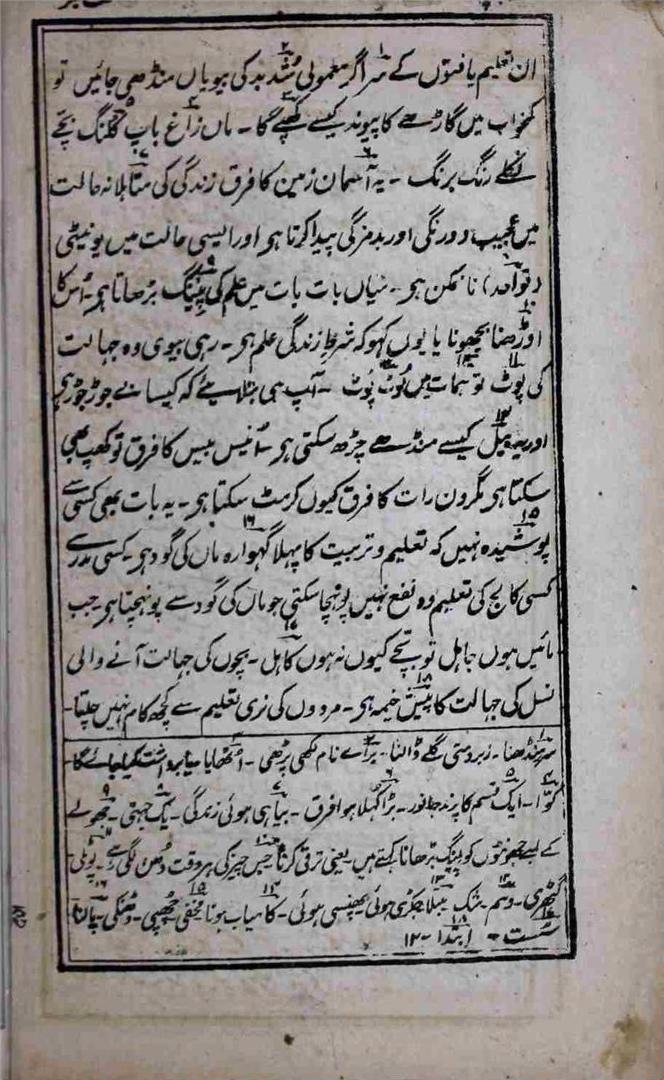 ان تعلیم یافتوں کے سر اگر معمولی شد بد کی بیویاں منڈھی جائیں تو
کمخواب میں گاڑھے کا پیوند کیسے کھپے گا۔ ماں زاغ باپ کلنگ بچے
نکلے رنگ برنگ۔ یہ آسمان زمین کا فرق زندگی کی متاہلانہ حالت
میں عجیب دورنگی اور بدمزگی پیدا کرتا ہی اور ایسی حالت میں یونیٹی
(تواحد) ناممکن ہی۔ میاں بات بات میں علم کی پینگ بڑھاتا ہی۔ اُس کا
اوڑھنا بچھونا یا یوں کہو کہ شرطِ زندگی علم ہی۔ رہی بیوی وہ جہالت
کی پوٹ توہمات میں لُوٹ پُوٹ۔ آپ ہی بتلایئے کہ کیسا بے جوڑ جوڑ ہی
اور یہ بیل کیسے منڈھے چڑھ سکتی ہی۔ اُنیس بیس کا فرق تو کھپ بھی
سکتا ہی مگر دن رات کا فرق کیوں کر مٹ سکتا ہی۔ یہ بات بھی کسی سے
پوشیدہ نہیں کہ تعلیم و تربیت کا پہلا گہوارہ ماں کی گود ہی۔ کسی مدرسے
کسی کالج کی تعلیم وہ نفع نہیں پونہچا سکتی جو ماں کی گود سے پونہچتا ہی جب
مائیں ہوں جاہل تو بچے کیوں نہ ہوں کاہل۔ بچوں کی جہالت آنے والی
نسل کی جہالت کا پیش خیمہ ہی۔ مردوں کی نری تعلیم سے کچھ کام نہیں چلتا۔
سر منڈھنا۔ زبردستی گلے ڈالنا۔ براے نام لکھی پڑھی۔ اُٹھایا یا برداشت کیا جائے گا
کوّا۔ ایک قسم کا پرند جانور۔ بڑا کُھلا ہوا فرق۔ بیاہی ہوئی زندگی۔ یک جہتی۔ جھولے
کے لیے جھونٹوں کو پینگ بڑھانا کہتے ہیں۔ یعنی ترقی کرنا جس چیز کی ہر وقت دُھن لگی رہے۔ پوٹلی
گٹھری۔ وہم۔ شک۔ مبتلا جکڑی ہوئی پھنسی ہوئی۔ کامیاب ہونا مخفی چُھپی۔ پالنا
سُست۔ ابتدا۔ ۱۲